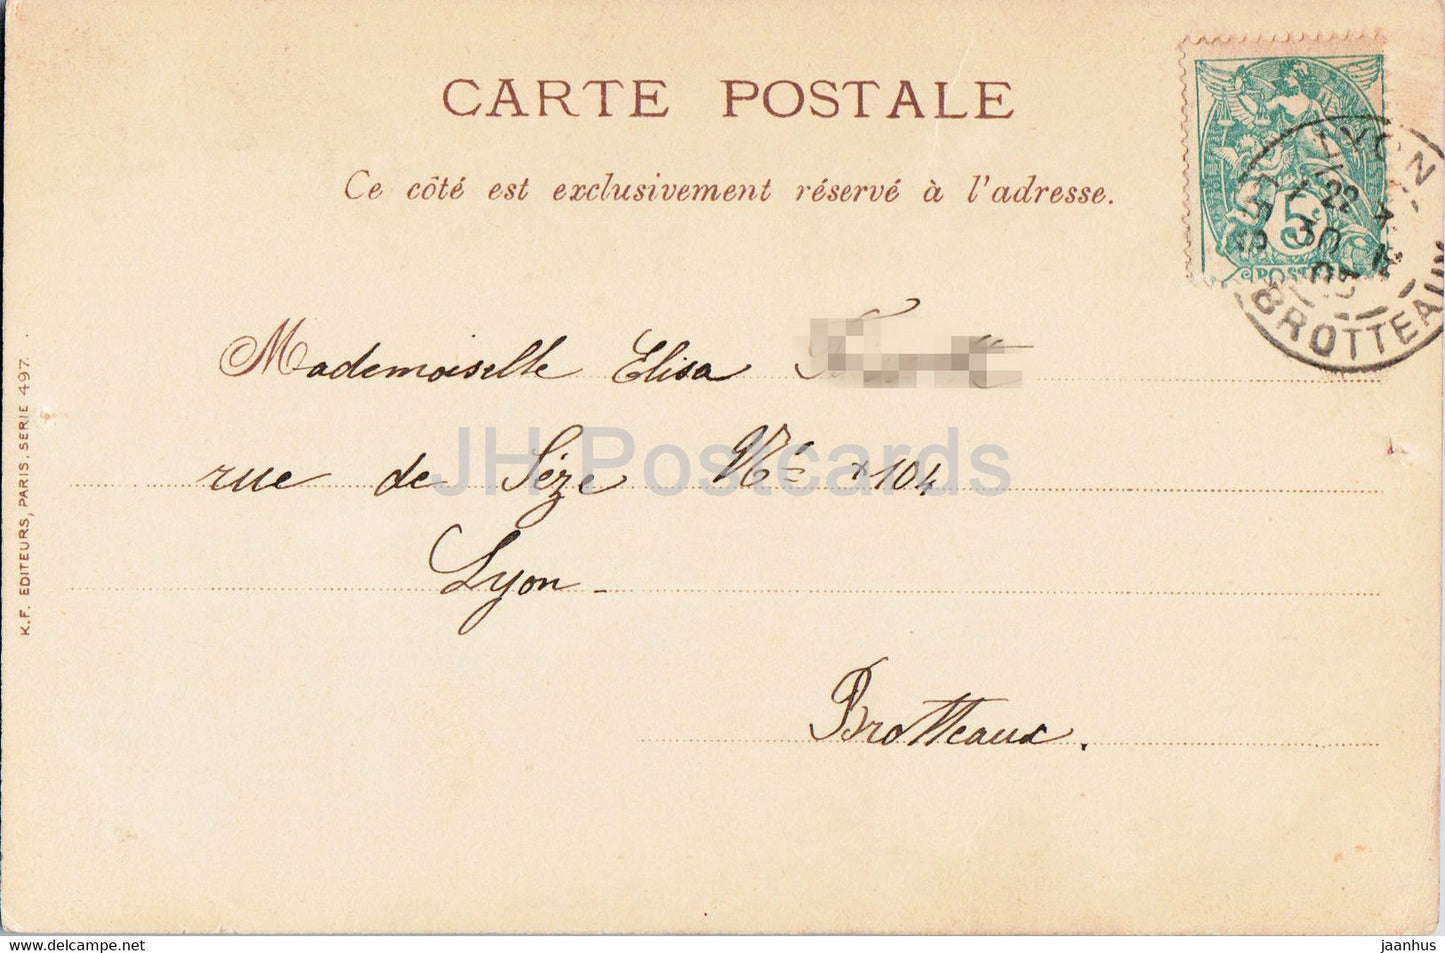 CARTE POSTALE
Ce côté est exclusivement réservé à l'adresse.
5
POSTES
LYON
22
30
BROTTEAUX
Mademoiselle Elisa
rue de Sèze Nº 104
Lyon
Brotteaux.
K.F. EDITEURS, PARIS. SERIE 497.
JH Postcards
https://www.jhpostcards.com
jaanhus